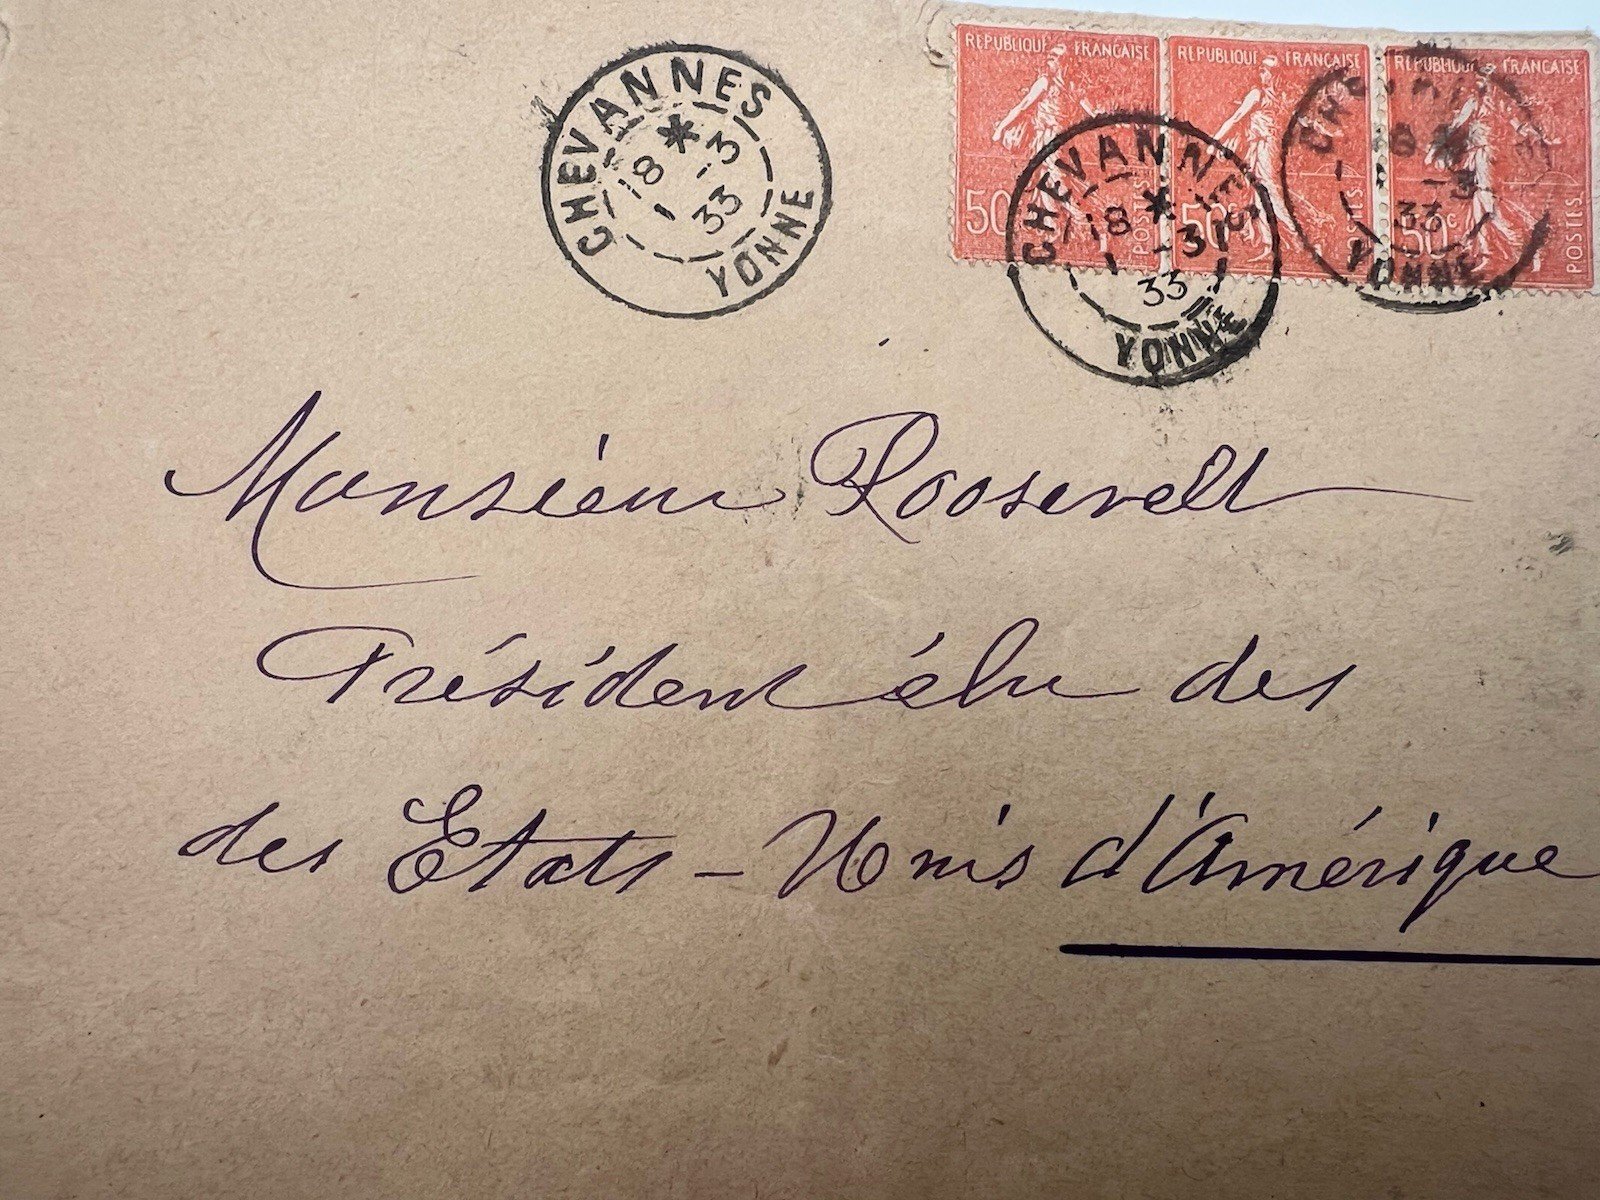 CHEVANNES
18 * 1 -3
33
YONNE
REPUBLIQUE FRANÇAISE
50
POSTES
REPUBLIQUE FRANÇAISE
50c
POSTES
REPUBLIQUE FRANCAISE
50c
POSTES
CHEVANNES
18 * 1 -3
33
YONNE
CHEVANNES
18 * 1 -3
33
YONNE
Monsieur Roosevelt
Président élu des
des Etats-Unis d'Amérique